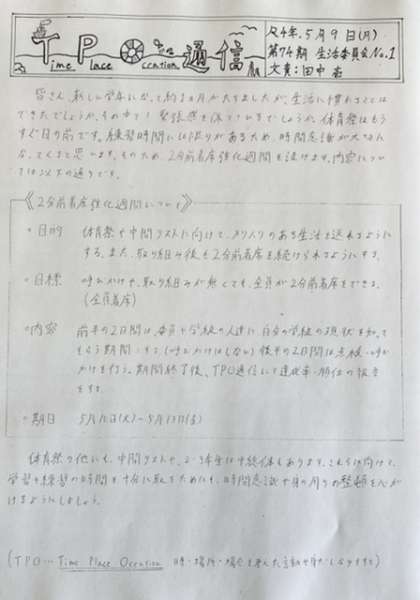 TPO通信
Time Place Occation
R4年.5月9日(月)
第74期 生活委員会No.1
文責:田中
皆さん、新しい学年になって約1ヵ月がたちましたが、生活に慣れることは
できたでしょうか。
すぐ目の前です。練習時間には限りがあるため、時間意識が大切
なってくると思います。そのため、2分前着席強化週間を設けます。内容につい
ては以下の通りです。
《2分前着席強化週間について》
・目的 体育祭や中間テストに向けて、メリハリのある生活を送れるように
する。また、取り組み後も2分前着席を続けられるようにする。
・目標 呼びかけや、取り組みが無くても、全員が2分前着席をできる。
(全員着席)
・内容 前半の2日間は、委員が学級の人達に自分の学級の現状を知って
もらう期間とする(呼びかけはしない)後半の2日間は点検・呼び
かけを行う。期間終了後、TPO通信にて達成率・順位の報告
をする。
・期日 5月10日(火)~5月13日(金)
体育祭の他にも、中間テストや、2・3年生は中総体もあります。これらに向けて、
学習や練習の時間を十分に取るためにも、時間意識や身の周りの整頓を心が
けるようにしましょう。
(TPO…Time Place Occation 時・場所・場合を考えた言動や身だしなみをすること)